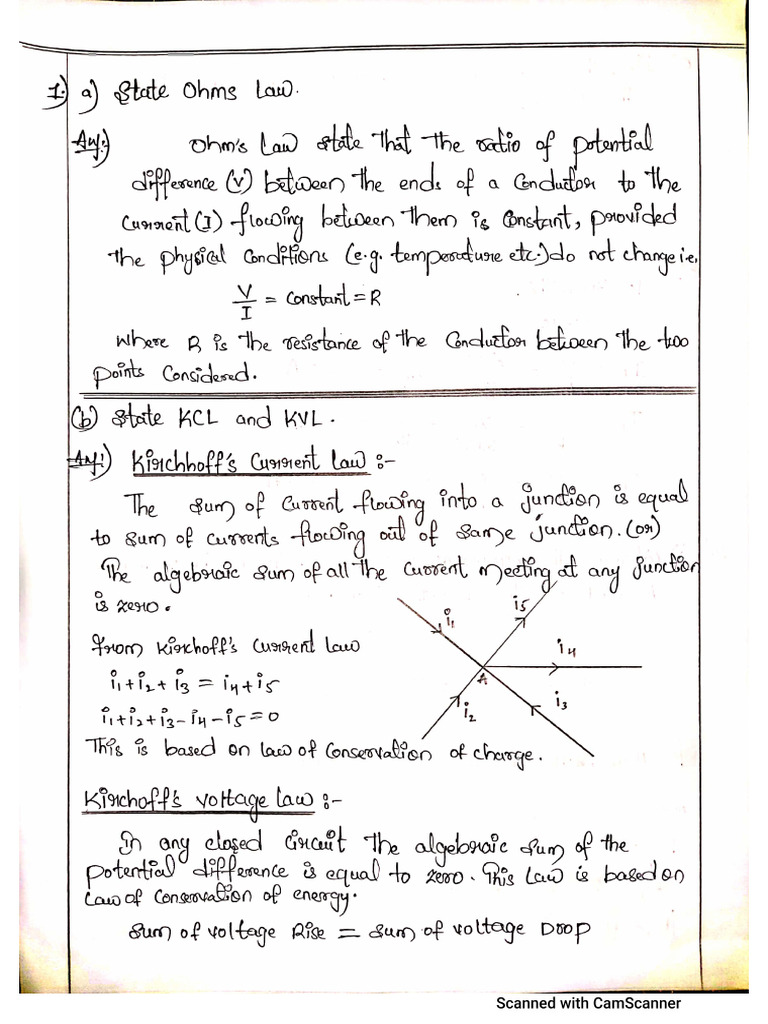 1.) a) State Ohms Law.
Ans:) Ohm's Law state that the ratio of potential
difference (V) between the ends of a conductor to the
current (I) flowing between them is constant, provided
the physical conditions (e.g. temperature etc.) do not change i.e.
V/I = constant = R
where R is the resistance of the conductor between the two
points considered.
(b) State KCL and KVL.
Ans:) Kirchhoff's Current Law :-
The sum of current flowing into a junction is equal
to sum of currents flowing out of same junction. (or)
The algebraic sum of all the current meeting at any junction
is zero.
from Kirchoff's Current Law
i1+i2+i3 = i4+i5
i1+i2+i3-i4-i5=0
i1
i5
i4
A
i2
i3
This is based on law of conservation of charge.
Kirchoff's Voltage Law :-
In any closed circuit the algebraic sum of the
potential difference is equal to zero. This law is based on
law of conservation of energy.
Sum of voltage Rise = Sum of voltage Drop
Scanned with CamScanner